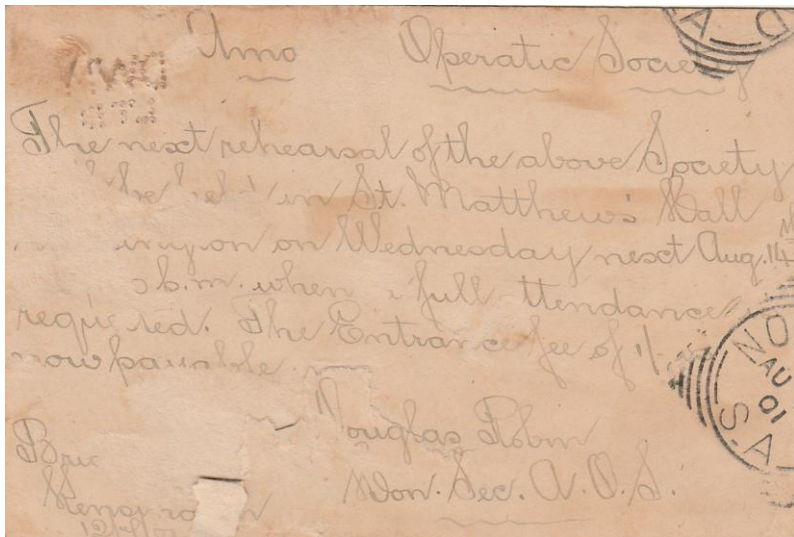 Amo Operatic Society
The next rehearsal of the above Society
be held in St. Matthew's Hall
on Wednesday next Aug. 14th
p.m. when full ttendance
requ ted. The Entrance fee of 1/-
now payable
Douglas
Hon. Sec. A. O. S.
NO
AU
01
S.A